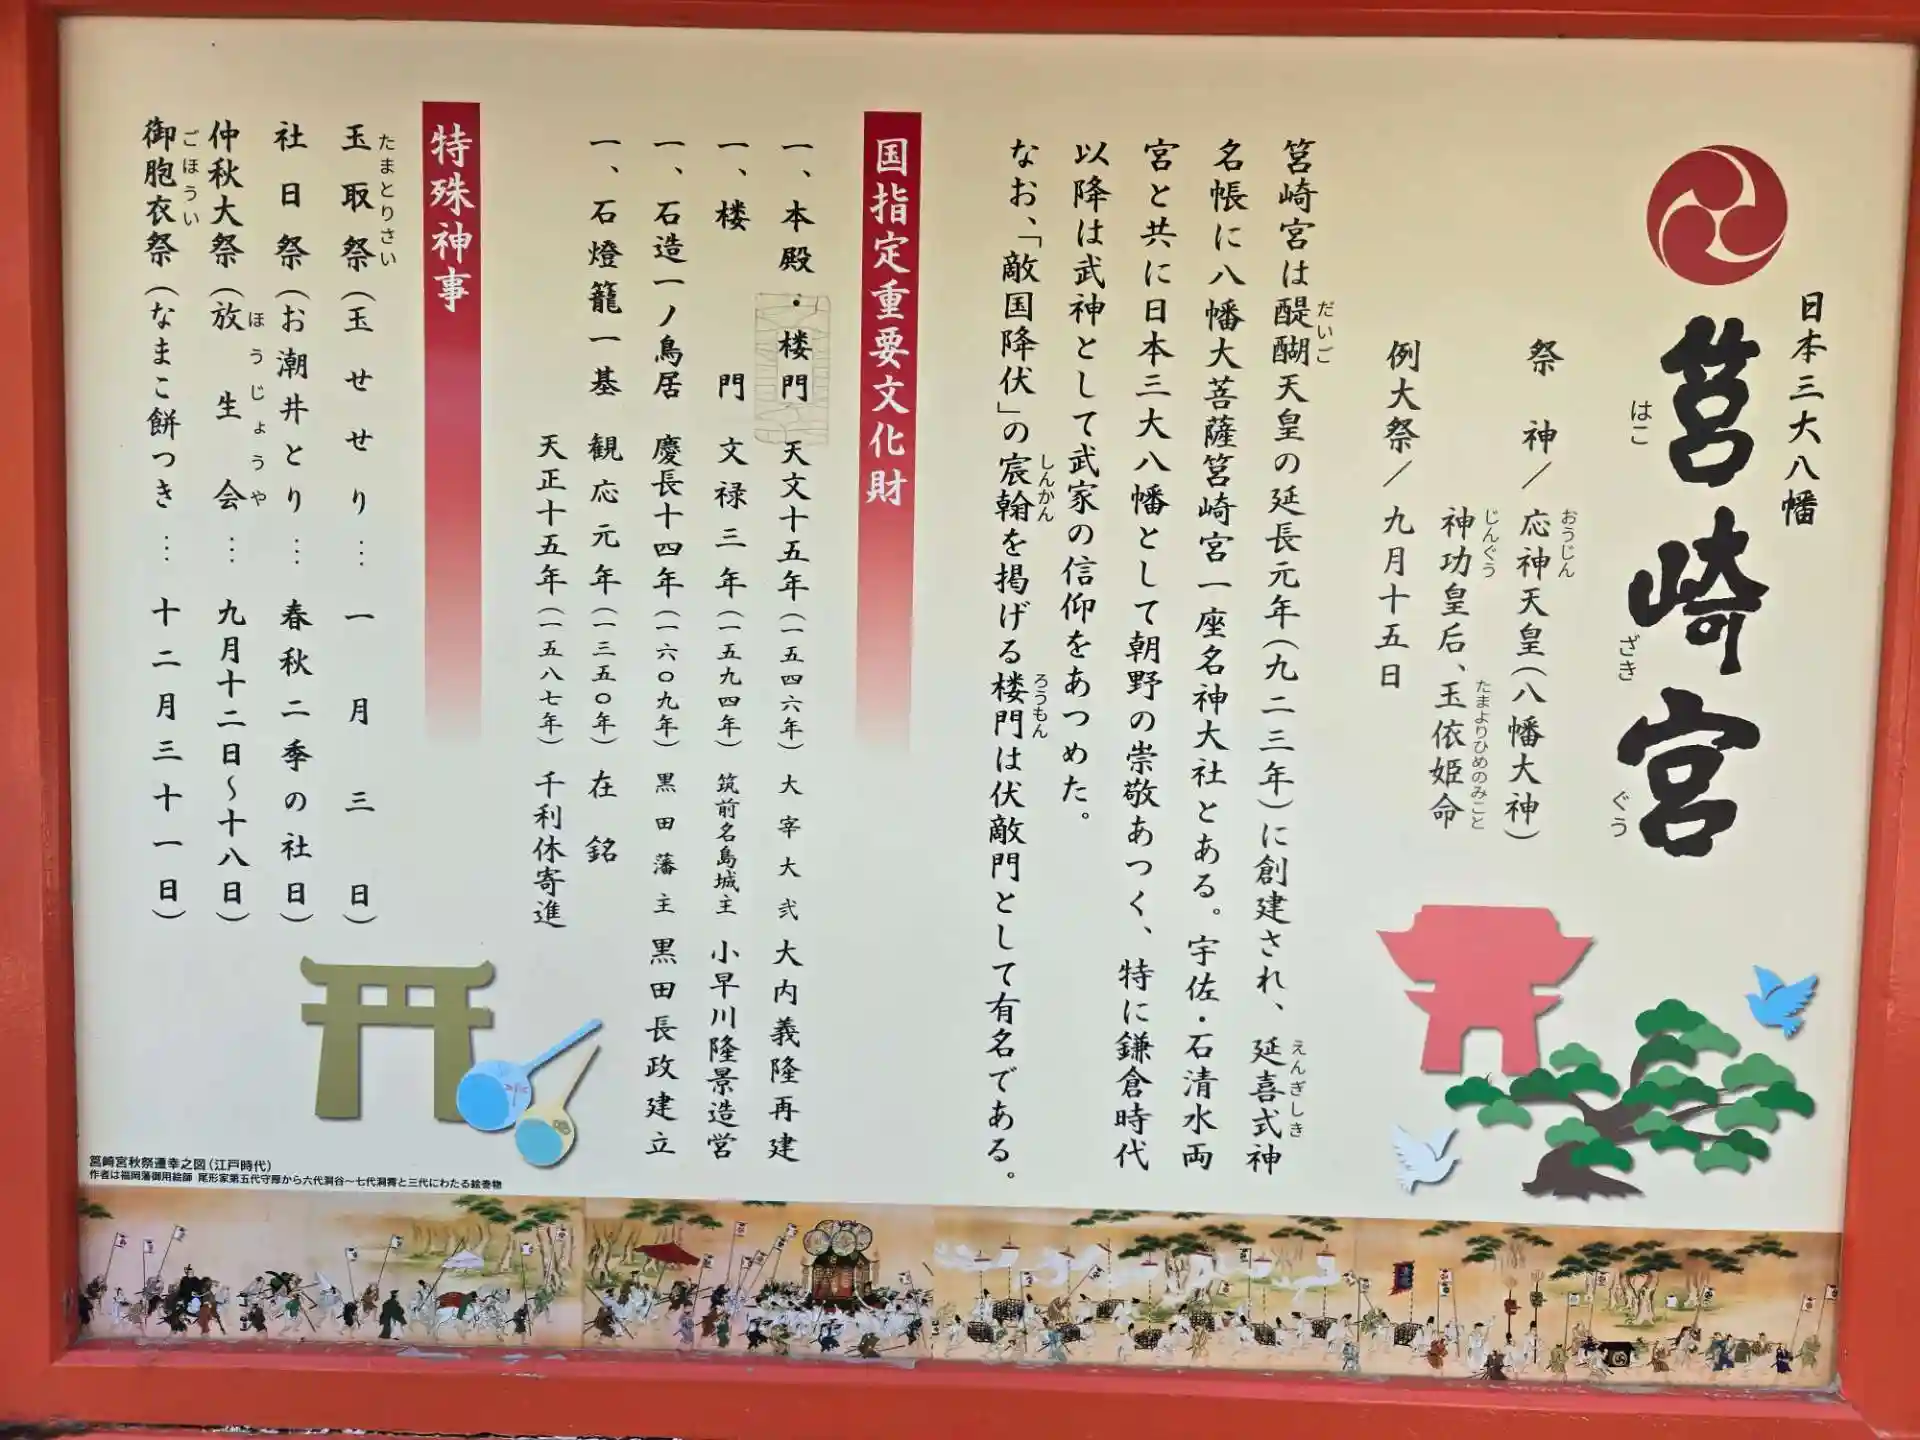 日本三大八幡
筥崎宮
はこ
ざき
ぐう
祭 神／応神天皇(八幡大神)
おうじん
神功皇后、玉依姫命
じんぐう
たまよりひめのみこと
例大祭／九月十五日
筥崎宮は醍醐天皇の延長元年(九二三年)に創建され、延喜式神
だいご
えんぎしき
名帳に八幡大菩薩筥崎宮一座名神大社とある。宇佐・石清水両
宮と共に日本三大八幡として朝野の崇敬あつく、特に鎌倉時代
以降は武神として武家の信仰をあつめた。
なお、「敵国降伏」の宸翰を掲げる楼門は伏敵門として有名である。
しんかん
ろうもん
国指定重要文化財
一、本殿・楼門 天文十五年(一五四六年) 大宰大弐 大内義隆再建
一、楼 門 文禄三年(一五九四年) 筑前名島城主 小早川隆景造営
一、石造一ノ鳥居 慶長十四年(一六〇九年) 黒田藩主 黒田長政建立
一、石燈籠一基 観応元年(一三五〇年) 在 銘
天正十五年(一五八七年) 千利休寄進
特殊神事
玉取祭(玉せせり… 一月三日)
たまとりさい
社日祭(お潮井とり… 春秋二季の社日)
仲秋大祭(放生会… 九月十二日〜十八日)
ほうじょうや
御胞衣祭(なまこ餅つき… 十二月三十一日)
ごほうい
筥崎宮秋祭遷幸之図(江戸時代)
作者は福岡藩御用絵師 尾形家第五代守厚から六代洞谷〜七代洞霄と三代にわたる絵巻物